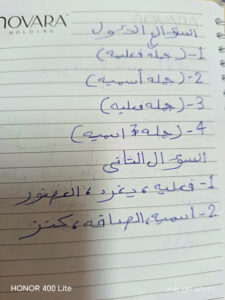 NOVARA
HOLDING
السؤال الأول
1-(جملة فعلية)
2-(جملة أسمية)
3-(جملة فعلية)
4-(جملة اسمية)
السؤال الثاني
1- فعلية، يغرد، العصفور
2- اسمية، الصداقة، كنز
HONOR 400 Lite